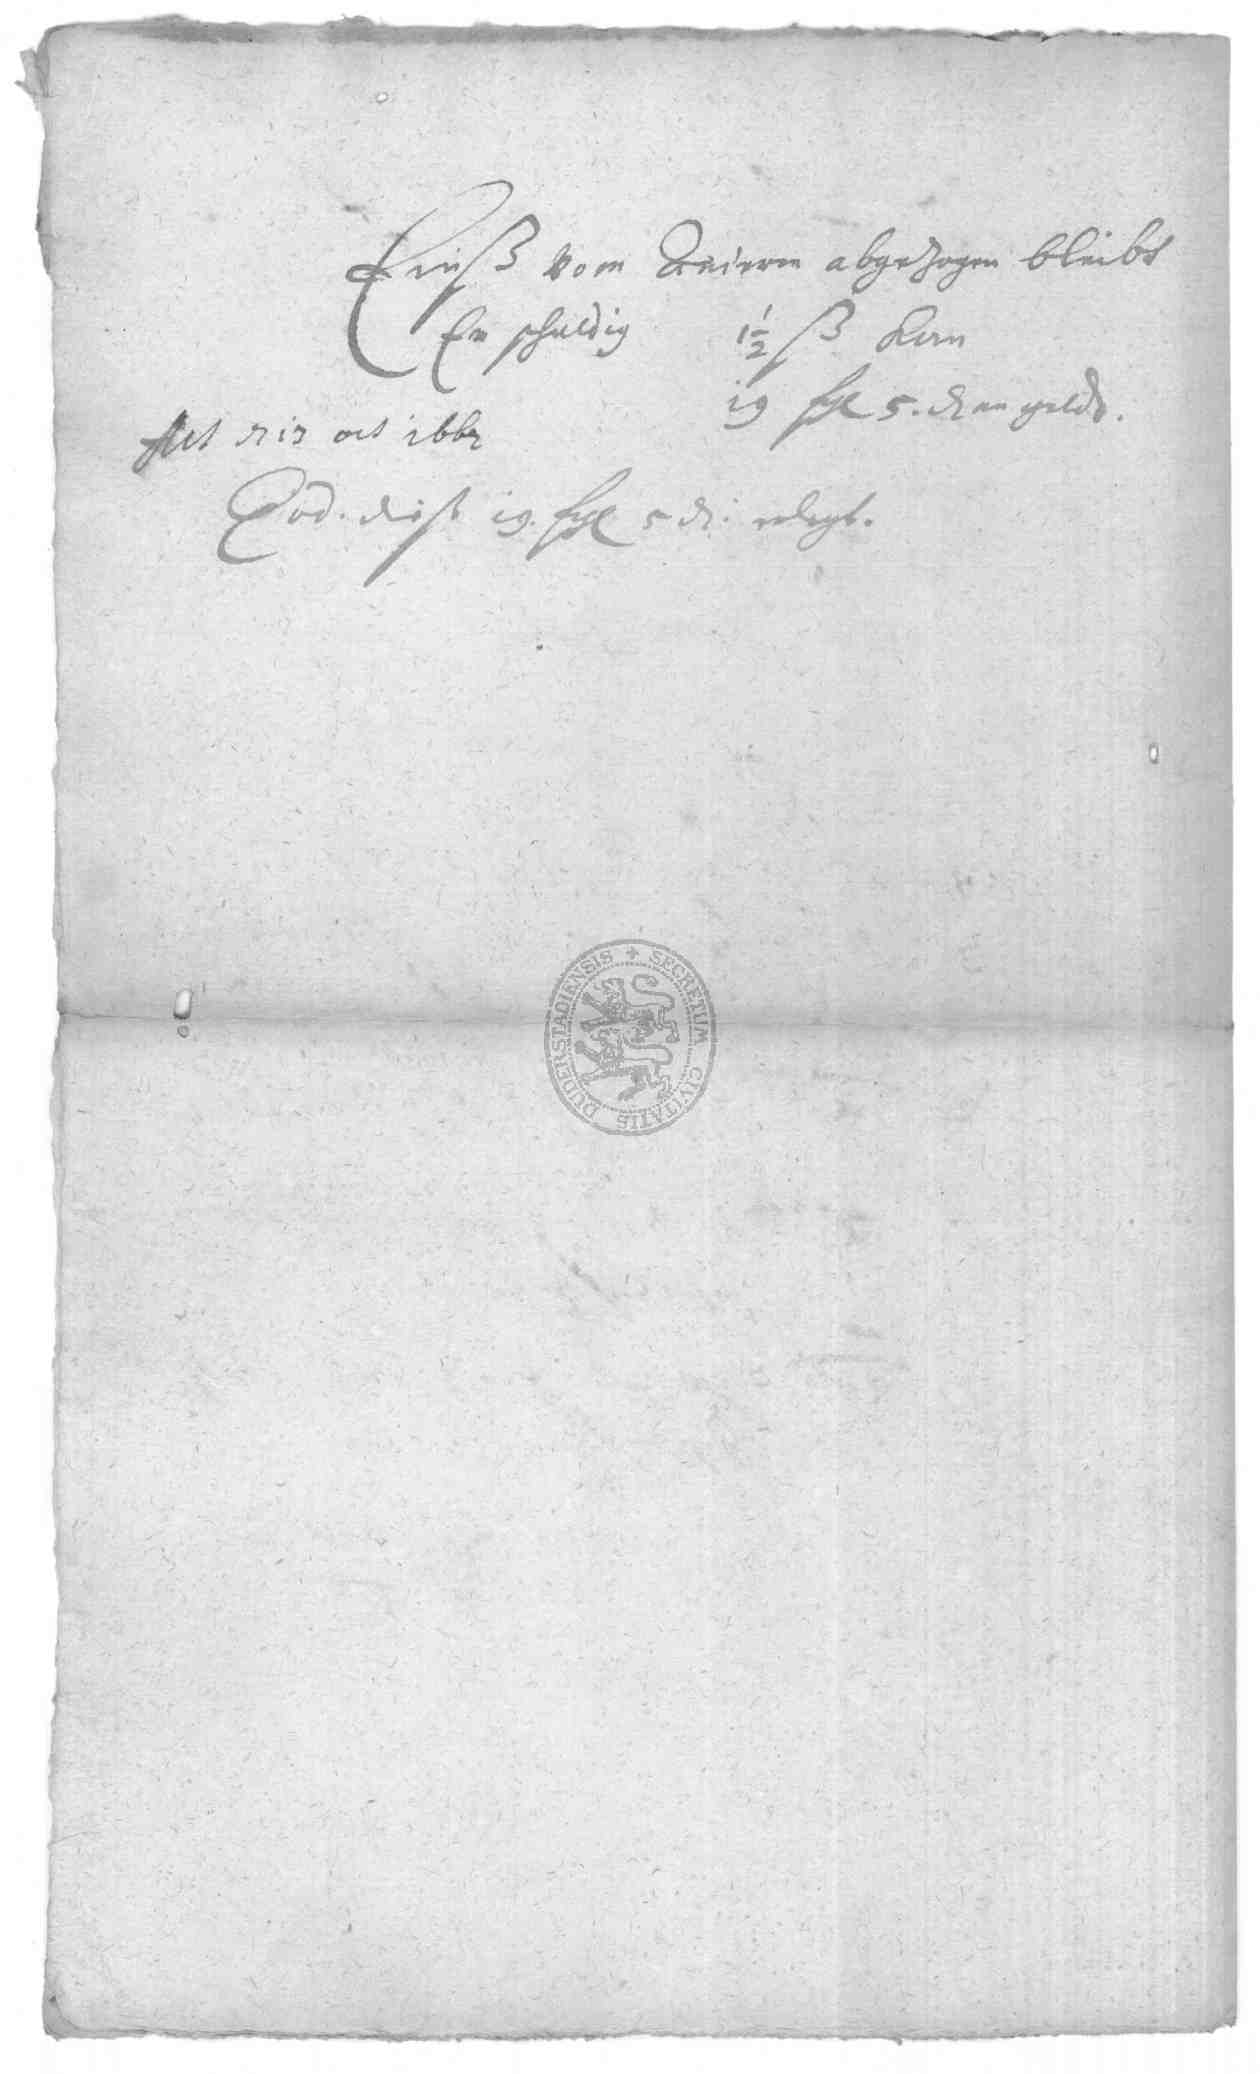 Dieß vom Vorigem abgezogen bleibt
Er schuldig 1½ ß Korn
19 fgl 5. d an geldt.
Act d 13 oct 1662
Eod. dieß 19. fgl 5 d: erlegt.
SECRETUM CIVITATIS DUDERSTADIENSIS